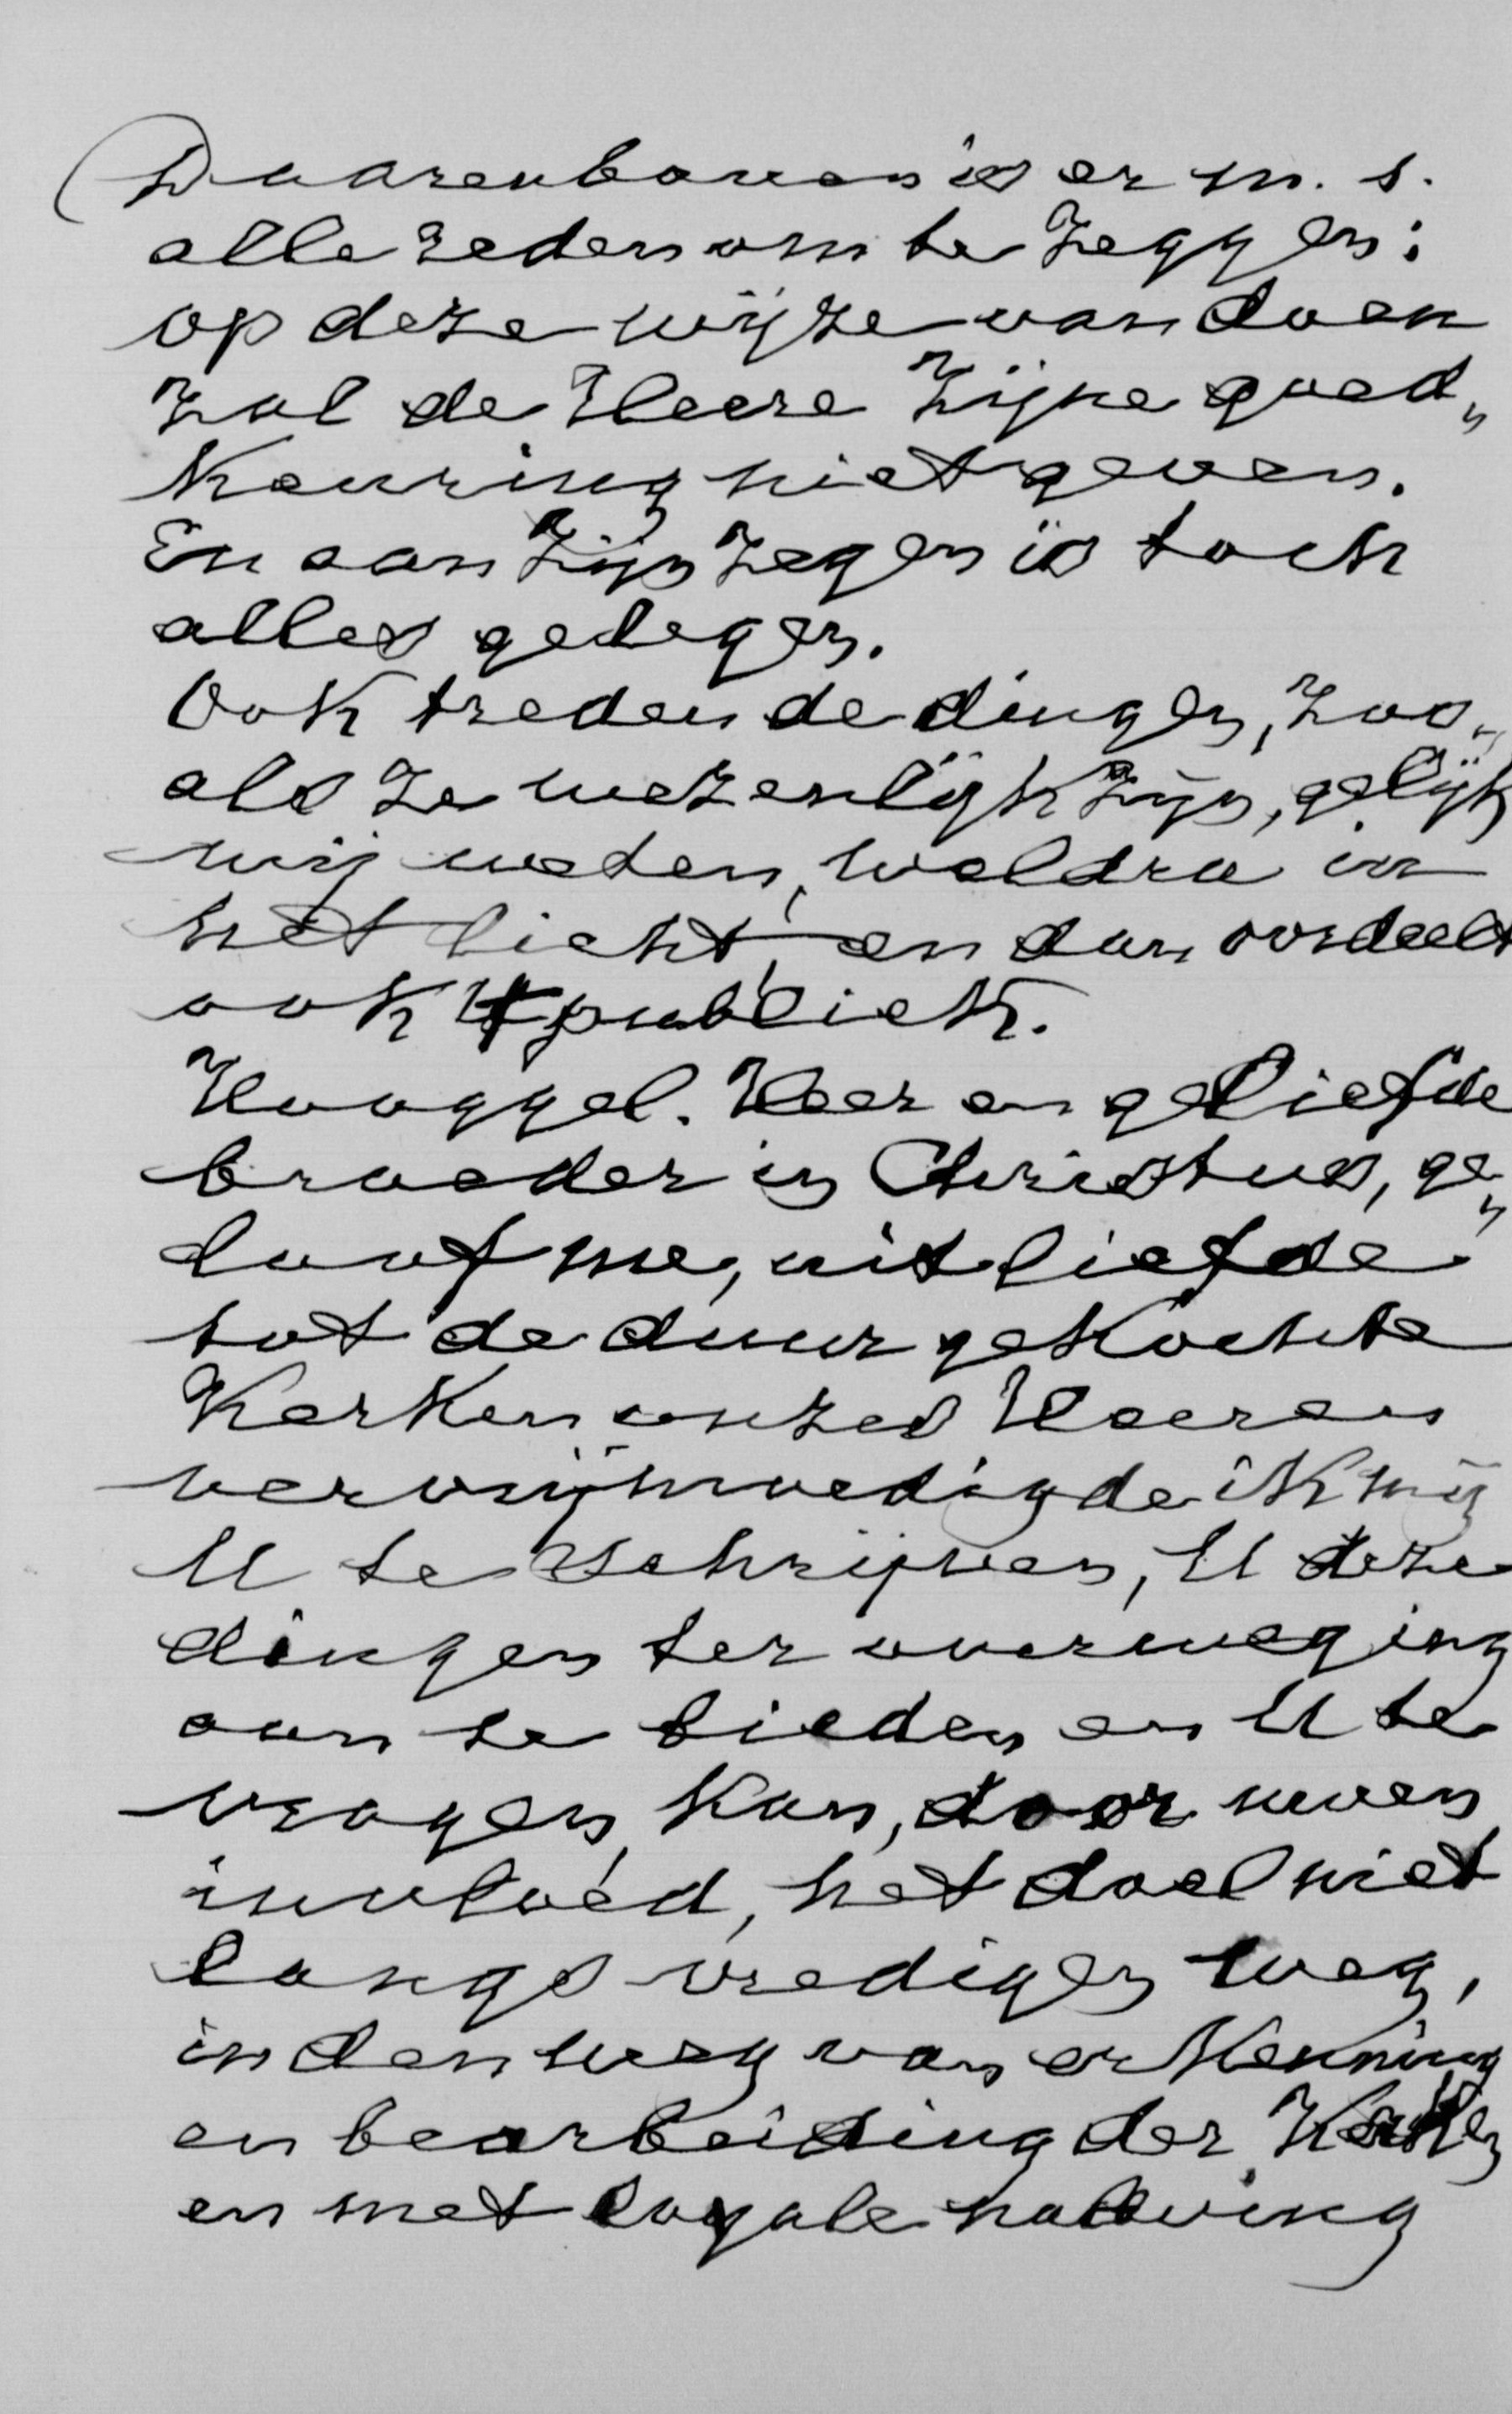 Daarenboven is er m. s.
alle reden om te zeggen:
op deze wijze van doen
zal de Heere Zijne goed„
keuring niet geven.
En aan Zijn zegen is toch
alles gelegen.
Ook treden de dingen, zoo„
als ze wezenlijk zijn, gelijk
wij weten, weldra in
het licht, en dan oordeelt
ook 't publiek.
Hooggel. Heer en geliefde
broeder in Christus, ge„
loof me, uit liefde
tot de duur gekochte
Kerken onzes Heeren
vervrijmoedigde ik mij
U te schrijven, U deze
dingen ter overweging
aan te bieden en U te
vragen, kan, door uwen
invloed, het doel niet
langs vredigen weg,
in den weg van erkenning
en bearbeiding der Kerken
en met loyale naleving